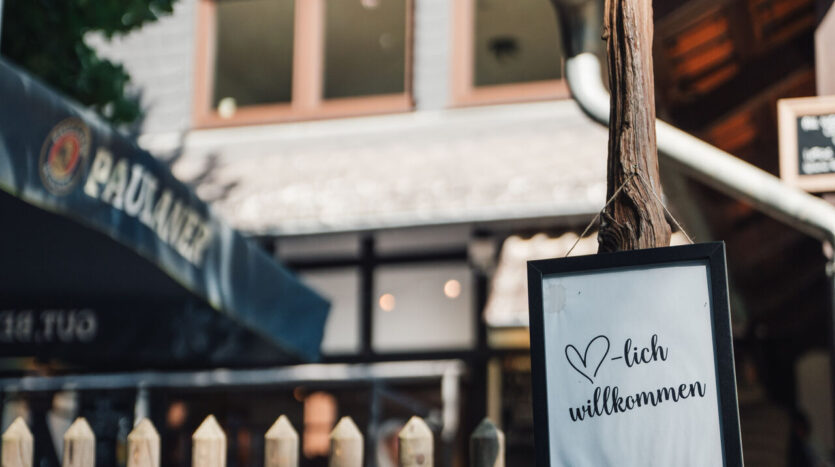 PAULANER
GUT, BE
♡-lich
willkommen